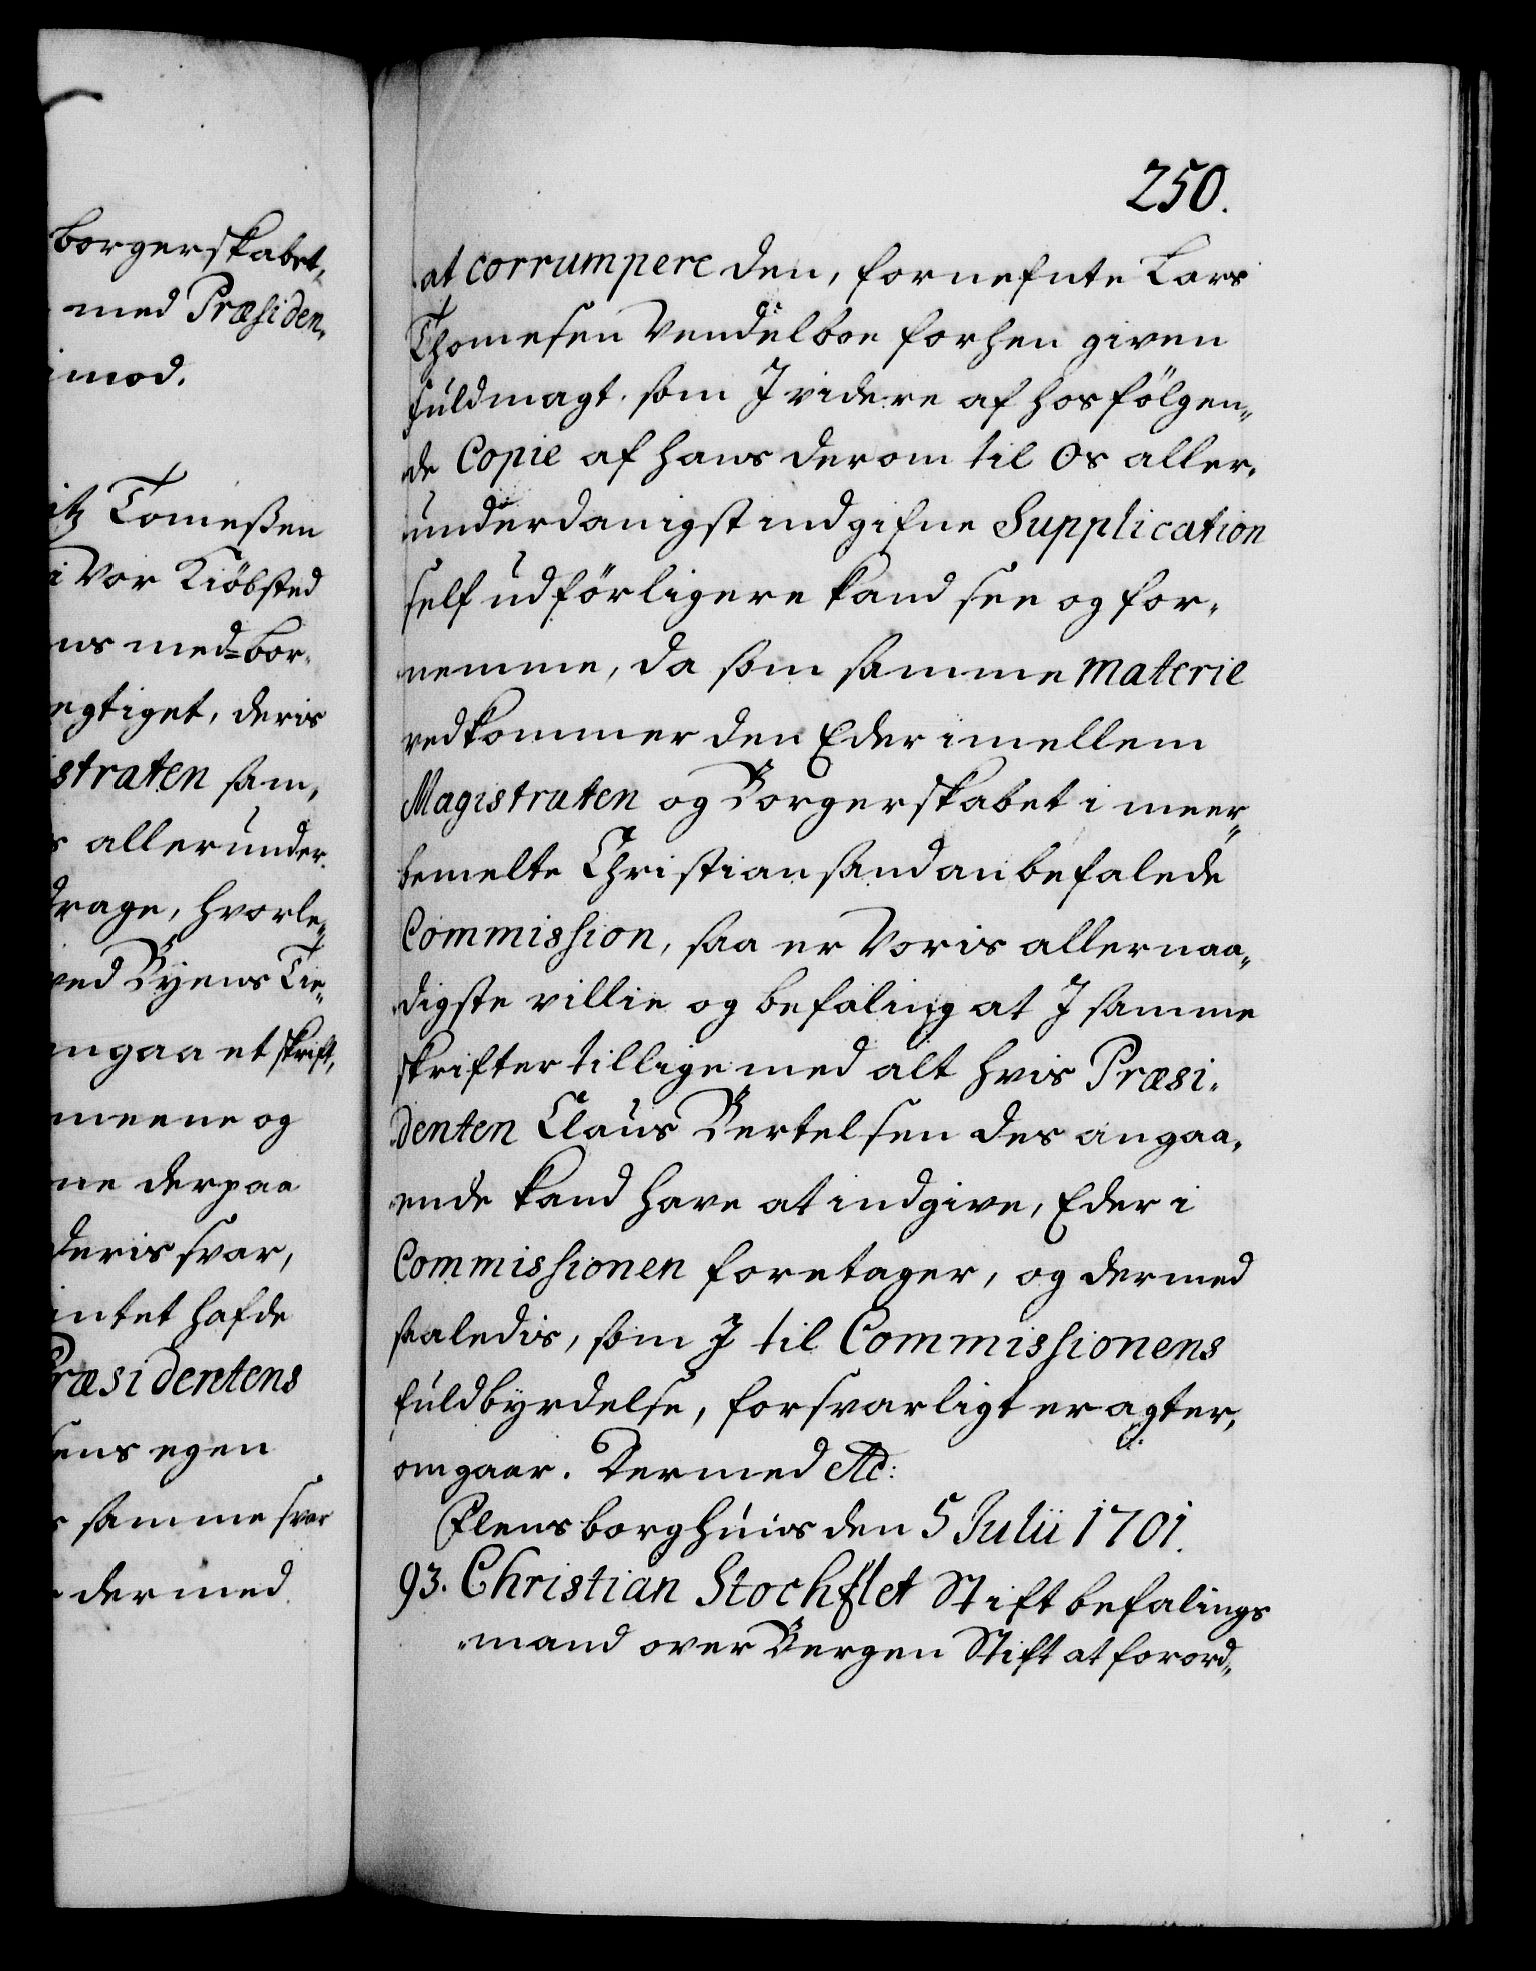 borgerskabet,
med Præsiden,
imod.
itz Tomeßen
i Vor Kiöbsted
ns med-bor,
egtiget, deris
straten sam,
s allerunder
drage, hvorle,,
ved Byens Tie,,
angaa et skrift,
meene og
ne derpaa
deris svar,
intet hafde
Præsidentens
sens egen
samme svar
dermed
250.
at corrumpere den, fornefnte Lars
Thomesen Vendelboe forhen given
fuldmagt. som I videre af hosfölgen,,
de Copie af hans derom til Os aller,
underdanigst indgifne Supplication
self udförligere kand see og for,
nemme, da som samme materie
vedkommer den Eder imellem
Magistraten og Borgerskabet i meer,,
bemelte Christiansand anbefalede
Commission, saa er Voris allernaa,,
digste villie og befaling at I samme
skrifter tillige med alt hvis Præsi,
denten Claus Bertelsen des angaa,
ende kand have at indgive, Eder i
Commissionen foretager, og dermed
saaledis, som I til Commissionens
fuldbyrdelse, forsvarligt eragter,
omgaar. Dermed etc:
Flensborghuus den 5 Julii 1701.
93. Christian Stochflet Stiftbefalings
mand over Bergen Stift at forord,,